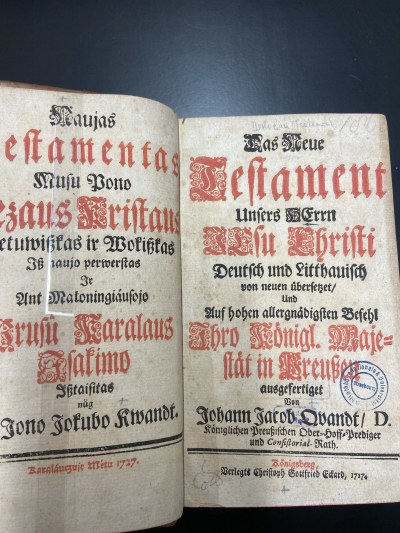 Naujas
estamentas
Musu Pono
ezaus Kristaus
etuwißkas ir Wokißkas
Iß naujo perwerstas
Ir
Ant Maloningiáusojo
rusu Karalaus
Isakimo
Ißtaisitas
nůg
Jono Jokubo Kwandt.
Karaláuczuje Metu 1727.
Das Neue
Testament
Unsers HErrn
JEsu Christi
Deutsch und Litthauisch
von neuen übersetzet/
Und
Auf hohen allergnädigsten Befehl
Ihro Königl. Maje-
stät in Preußen
ausgefertiget
Von
Johann Jacob Qvandt/ D.
Königlichen Preußischen Ober-Hoff-Prediger
und Consistorial-Rath.
Königsberg,
Verlegts Christoph Gottfried Eckard, 1727.